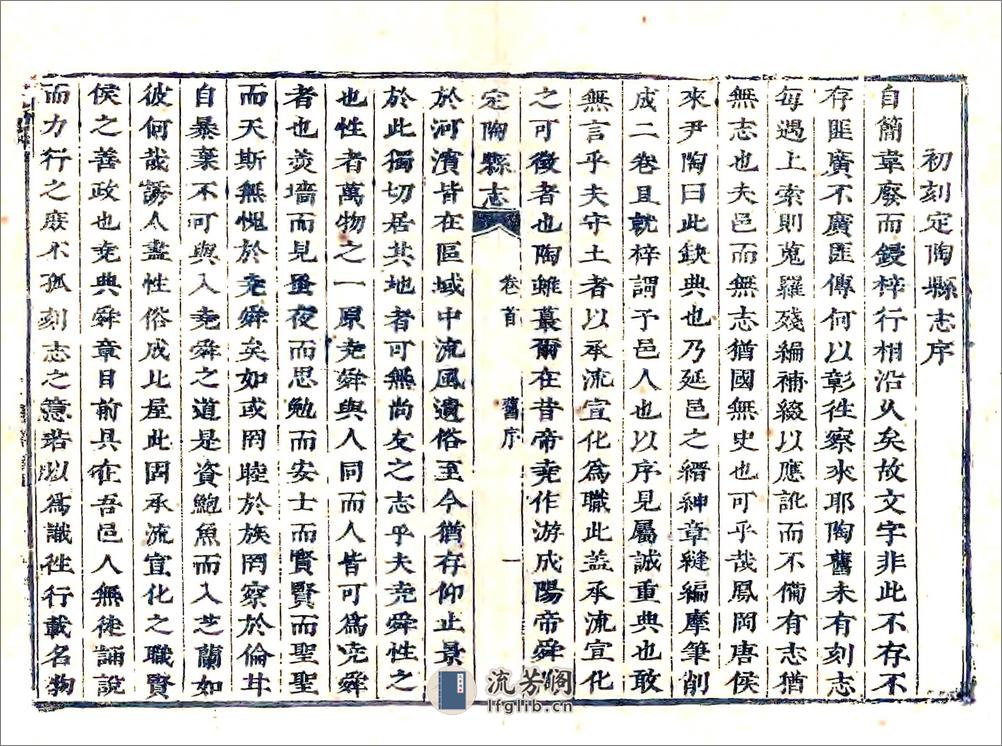 初刻定陶縣志序
自簡韋廢而鋟梓行相沿久矣故文字非此不存不
存匪廣不廣匪傳何以彰徃察來耶陶舊未有刻志
每遇上索則蒐羅殘編補綴以應訛而不備有志猶
無志也夫邑而無志猶國無史也可乎哉鳳岡唐侯
來尹陶曰此缺典也乃延邑之縉紳章縫編摩筆削
成二卷且就梓謂予邑人也以序見屬誠重典也敢
無言乎夫守土者以承流宣化為職此盖承流宣化
之可徵者也陶雖蕞爾在昔帝堯作游成陽帝舜
定陶縣志
卷首
舊序
一
於河濱皆在區域中流風遺俗至今猶存仰止景
於此獨切居其地者可無尚友之志乎夫堯舜性之
也性者萬物之一原堯舜與人同而人皆可為堯舜
者也羙墻而見夜而思勉而安士而賢賢而聖聖
而天斯無愧於堯舜矣如或罔睦於族罔察於倫甘
自暴棄不可與入堯舜之道是資鮑魚而入芝蘭如
彼何哉誘人盡性俗成比屋此固承流宣化之職賢
侯之善政也堯典舜章目前具在吾邑人無徒誦說
而力行之庶不孤刻志之意若以為識徃行載名物
流芳阁
lfglib.cn